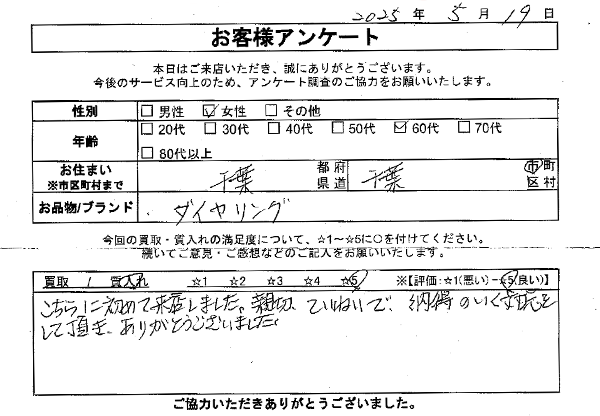 2025 年 5 月 19 日
お客様アンケート
本日はご来店いただき、誠にありがとうございます。
今後のサービス向上のため、アンケート調査のご協力をお願いいたします。
性別 □ 男性 ☑ 女性 □ その他
年齢 □ 20代 □ 30代 □ 40代 □ 50代 ☑ 60代 □ 70代
□ 80代以上
お住まい ※市区町村まで 千葉 都 府 県 道 千葉 市 町 区 村
お品物/ブランド ・ダイヤリング
今回の買取・質入れの満足度について、☆1～☆5に○を付けてください。
続いてご意見・ご感想などのご記入をお願いいたします。
買取 / 質入れ ☆1 ☆2 ☆3 ☆4 ☆5 ※【評価:☆1(悪い)－☆5(良い)】
こちらに初めて来店しました。親切、ていねいで、納得のいく対応を
して頂き、ありがとうございました。
ご協力いただきありがとうございました。